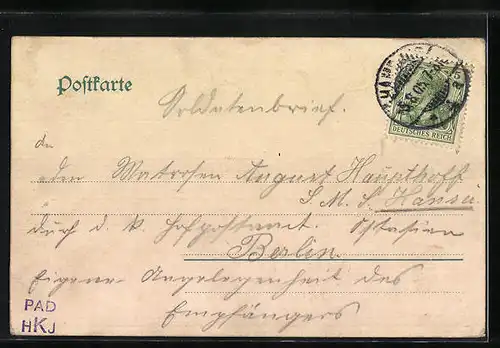 Postkarte
Soldatenbrief.
An
den Matrosen August Haupthoff
S. M. S. Hansa
durch d. k. Hofpostamt. Ostasien
Berlin.
Eigene Angelegenheit des
Empfängers
DEUTSCHES REICH
PAD
HKJ